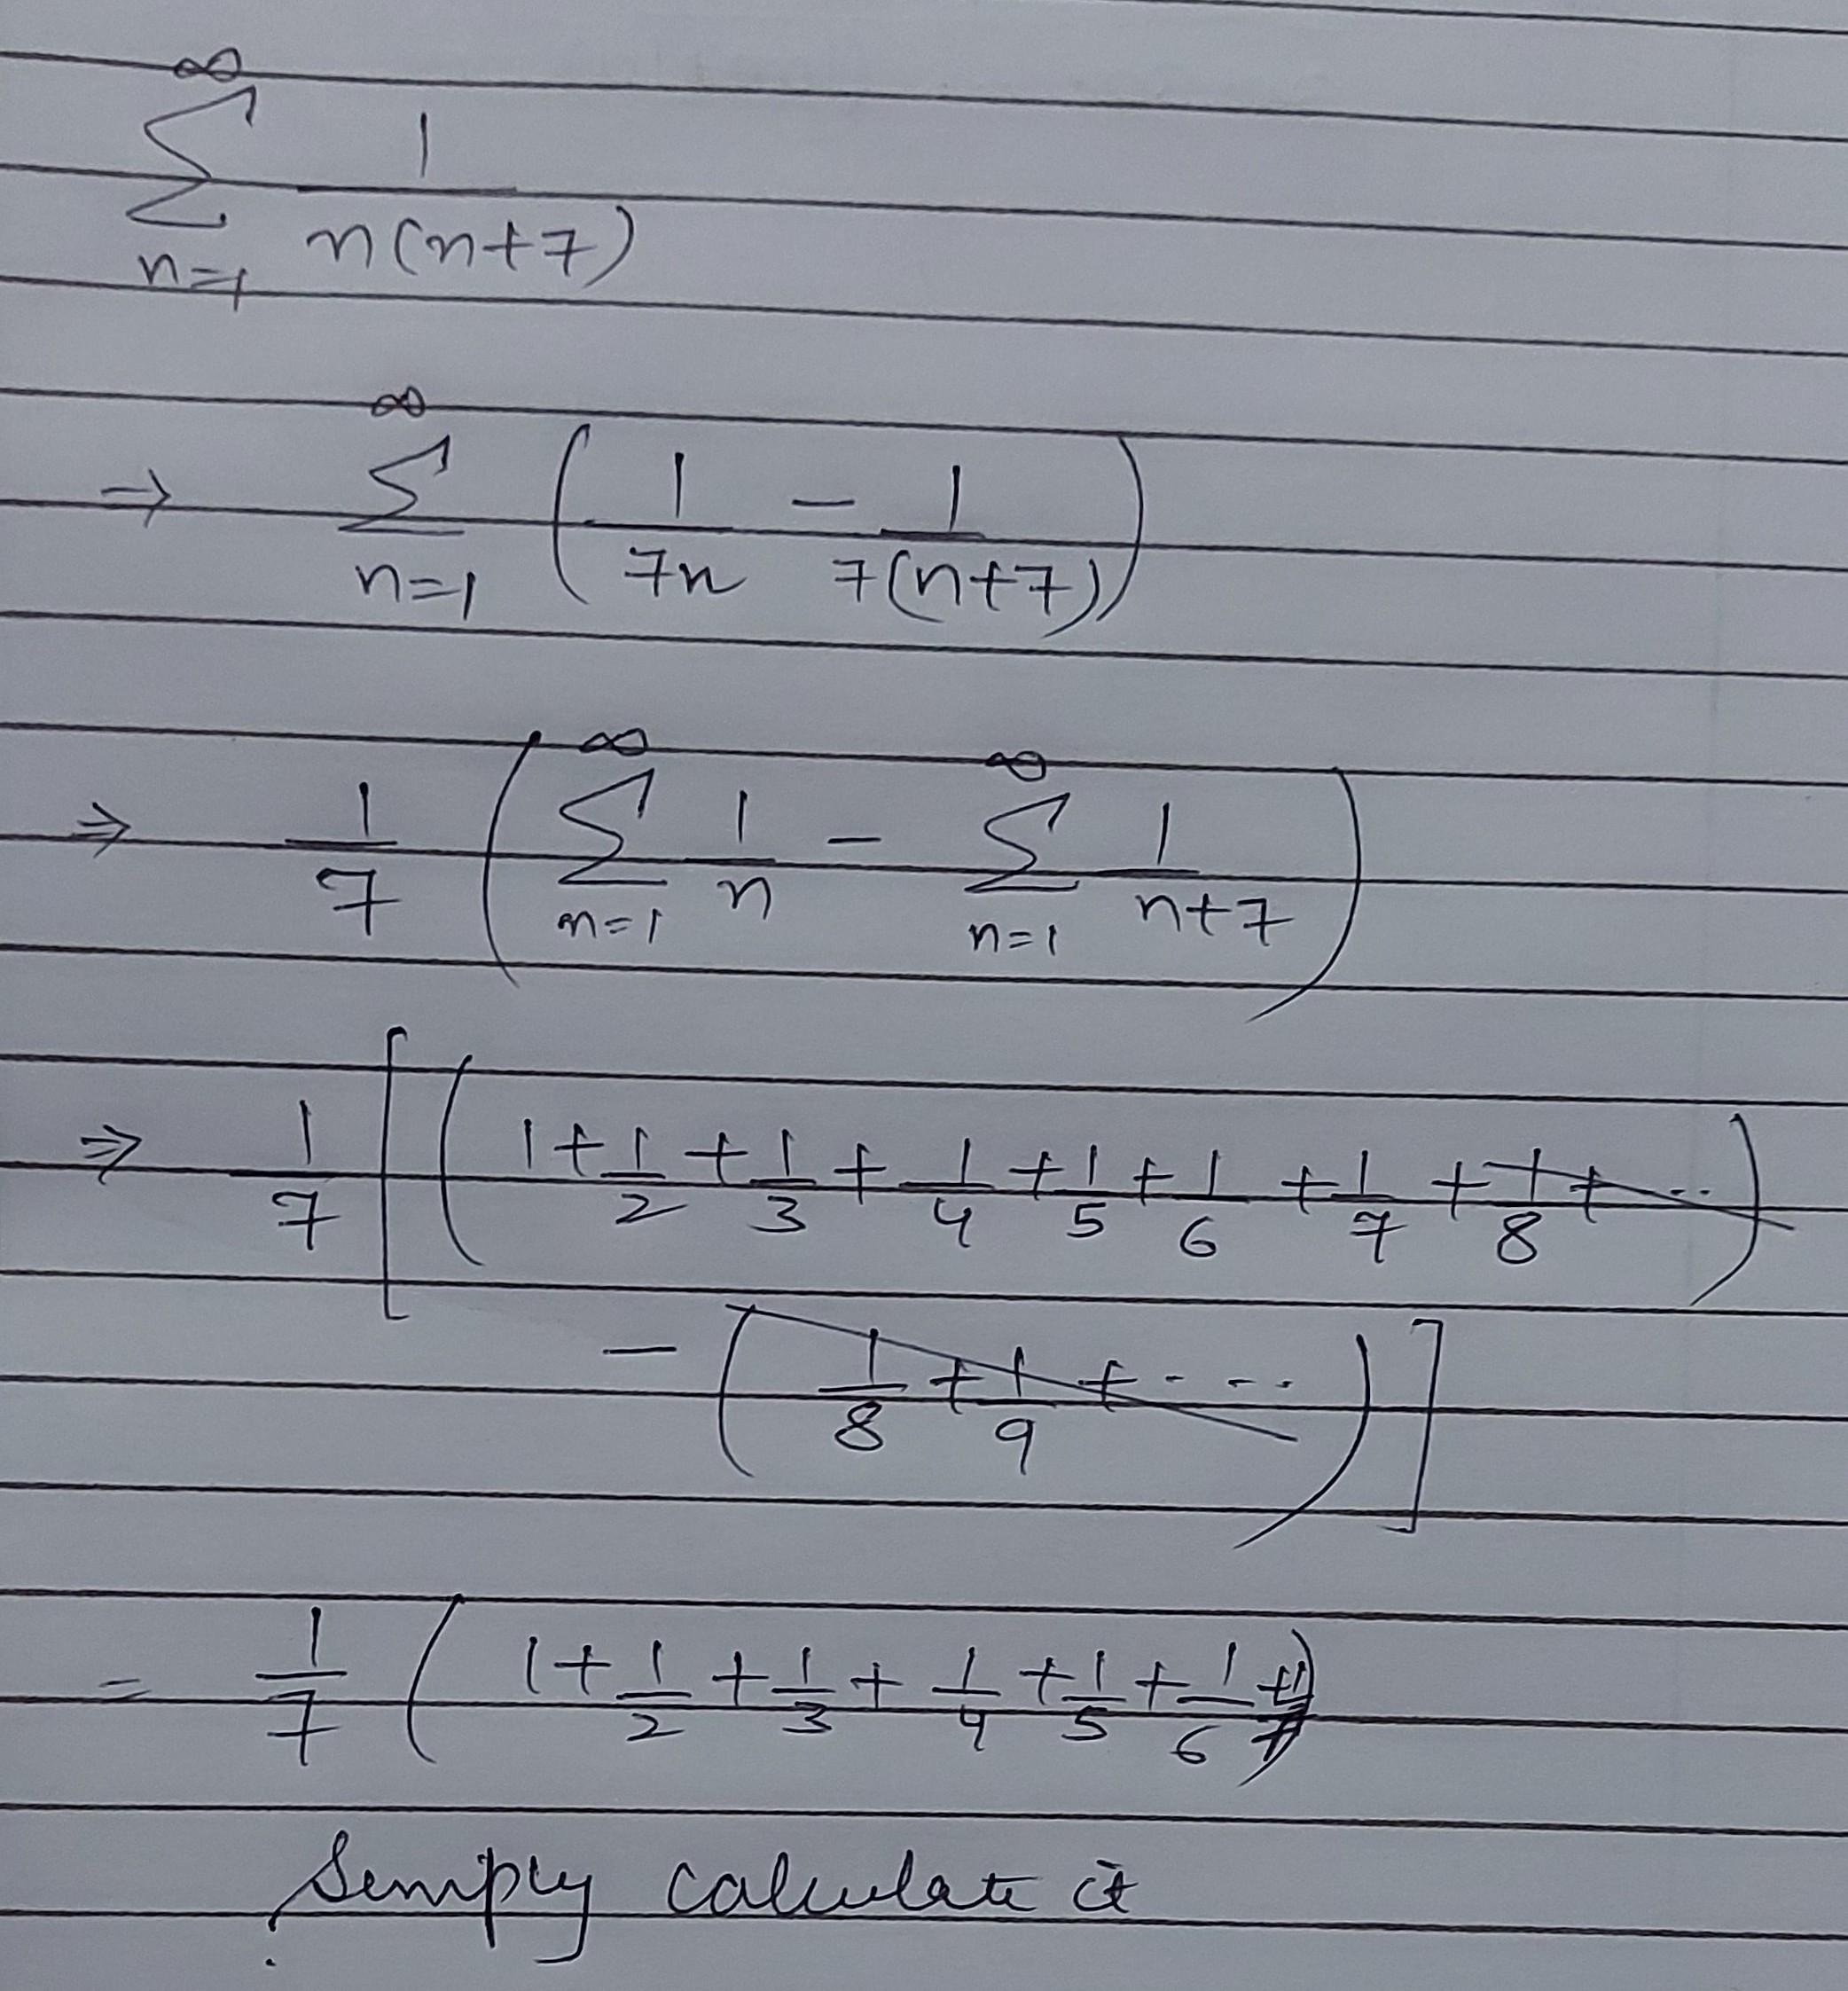 ∞
Σ 1/n(n+7)
n=1
⇒ ∞ Σ n=1 (1/7n - 1/7(n+7))
⇒ 1/7 (∞ Σ n=1 1/n - ∞ Σ n=1 1/n+7)
⇒ 1/7 [(1+1/2+1/3+1/4+1/5+1/6+1/7+1/8+..)
-(1/8+1/9+....)]
= 1/7 (1+1/2+1/3+1/4+1/5+1/6+1/7)
Simply calculate it